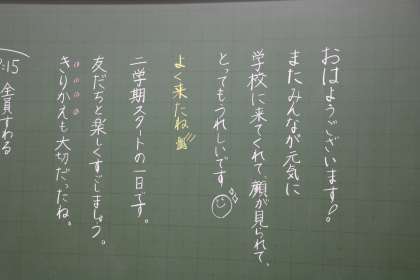 おはようございます!
またみんなが元気に
学校に来てくれて、顔が見られて、
とってもうれしいです
よく来たね
二学期スタートの一日です。
友だちと楽しくすごしましょう。
きりかえも大切だったね。
:15 全員すわる